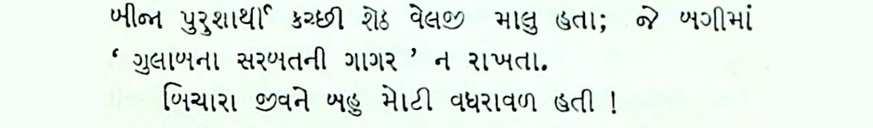 બીજા પુરુશાર્થી કચ્છી શેઠ વેલજી માલુ હતા; જે બગીમાં
‘ ગુલાબના સરબતની ગાગર ’ ન રાખતા.
બિચારા જીવને બહુ મોટી વધરાવળ હતી !